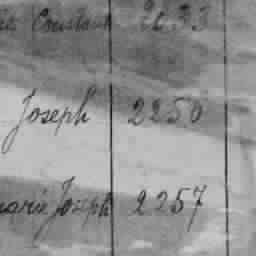 Constant 2233
Joseph 2250
marie Joseph 2257